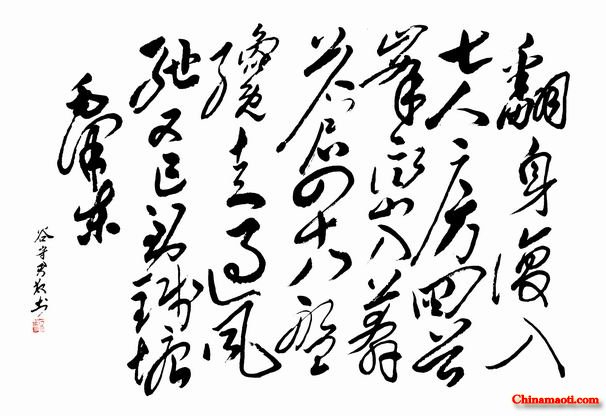 翻身復入
七人房回首
峯巒入莽
蒼四十八盤
纔走過風
馳又已到錢塘
毛澤東
谷守
Chinamaoti.com